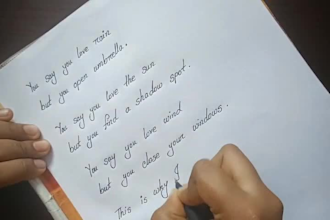 You say you love rain
but you open umbrella.
You say you love the sun
but you find a shadow spot.
You say you love wind
but you close your windows.
This is why I